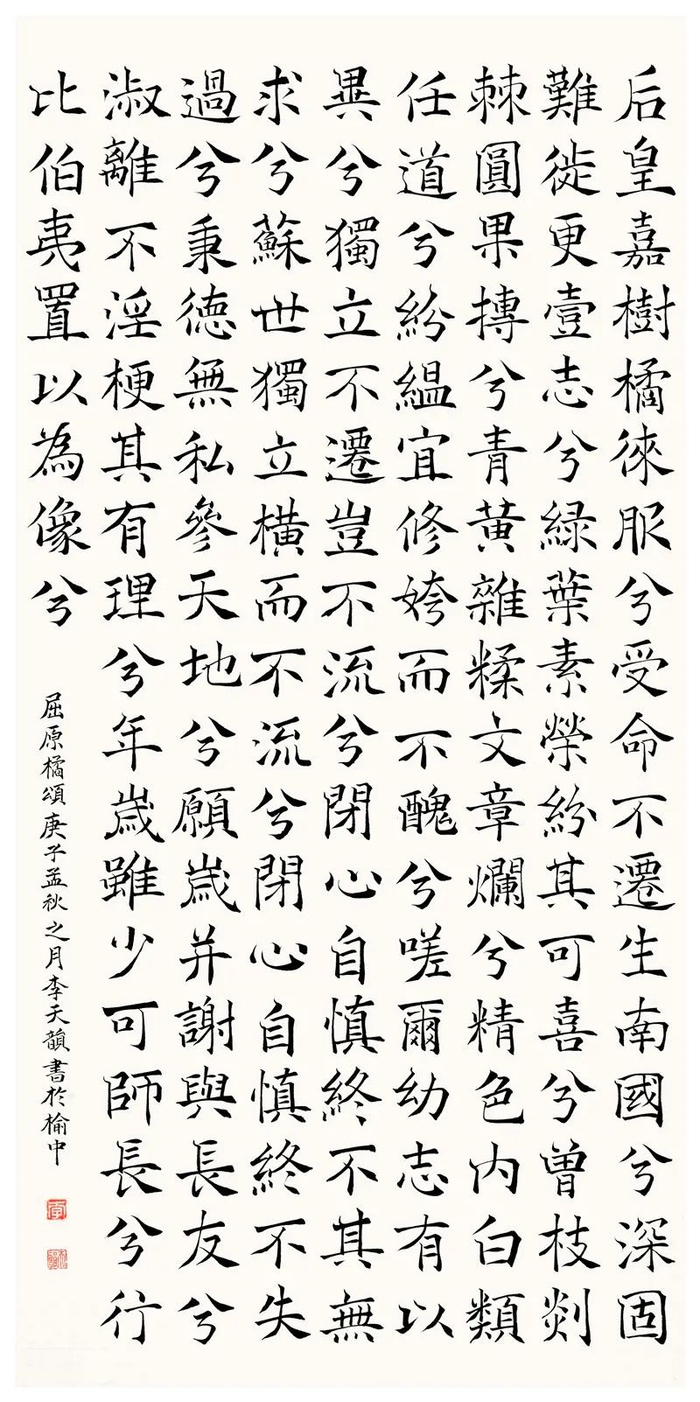 后皇嘉樹橘徠服兮受命不遷生南國兮深固
難徙更壹志兮緑葉素榮紛其可喜兮曾枝剡
棘圓果摶兮青黄雜糅文章爛兮精色内白類
任道兮紛緼宜修姱而不醜兮嗟爾幼志有以
異兮獨立不遷豈不流兮閉心自慎終不其無
求兮蘇世獨立横而不流兮閉心自慎終不失
過兮秉德無私參天地兮願歲并謝與長友兮
淑離不淫梗其有理兮年歲雖少可師長兮行
比伯夷置以為像兮
屈原橘頌庚子孟秋之月李天韻書於榆中
李